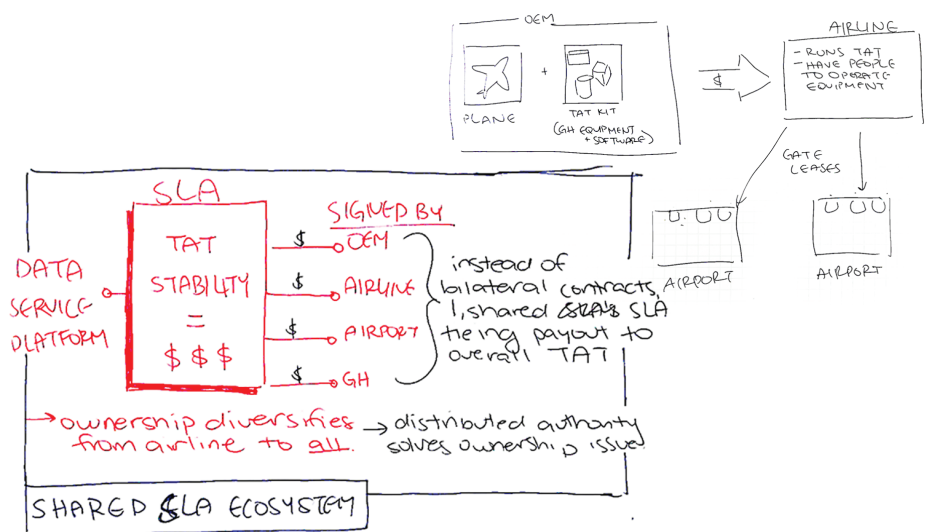 OEM
PLANE
+
TAT KIT
(GH EQUIPMENT
+ SOFTWARE)
$
AIRLINE
- RUNS TAT
- HAVE PEOPLE
TO OPERATE
EQUIPMENT
GATE
LEASES
AIRPORT
AIRPORT
SLA
TAT
STABILITY
=
$ $ $
DATA
SERVICE
PLATFORM
SIGNED BY
$ OEM
$ AIRLINE
$ AIRPORT
$ GH
instead of
bilateral contracts,
1 shared SLA
tieing payout to
overall TAT
→ ownership diversifies
from airline to all.
→ distributed authority
solves ownership issue
SHARED SLA ECOSYSTEM